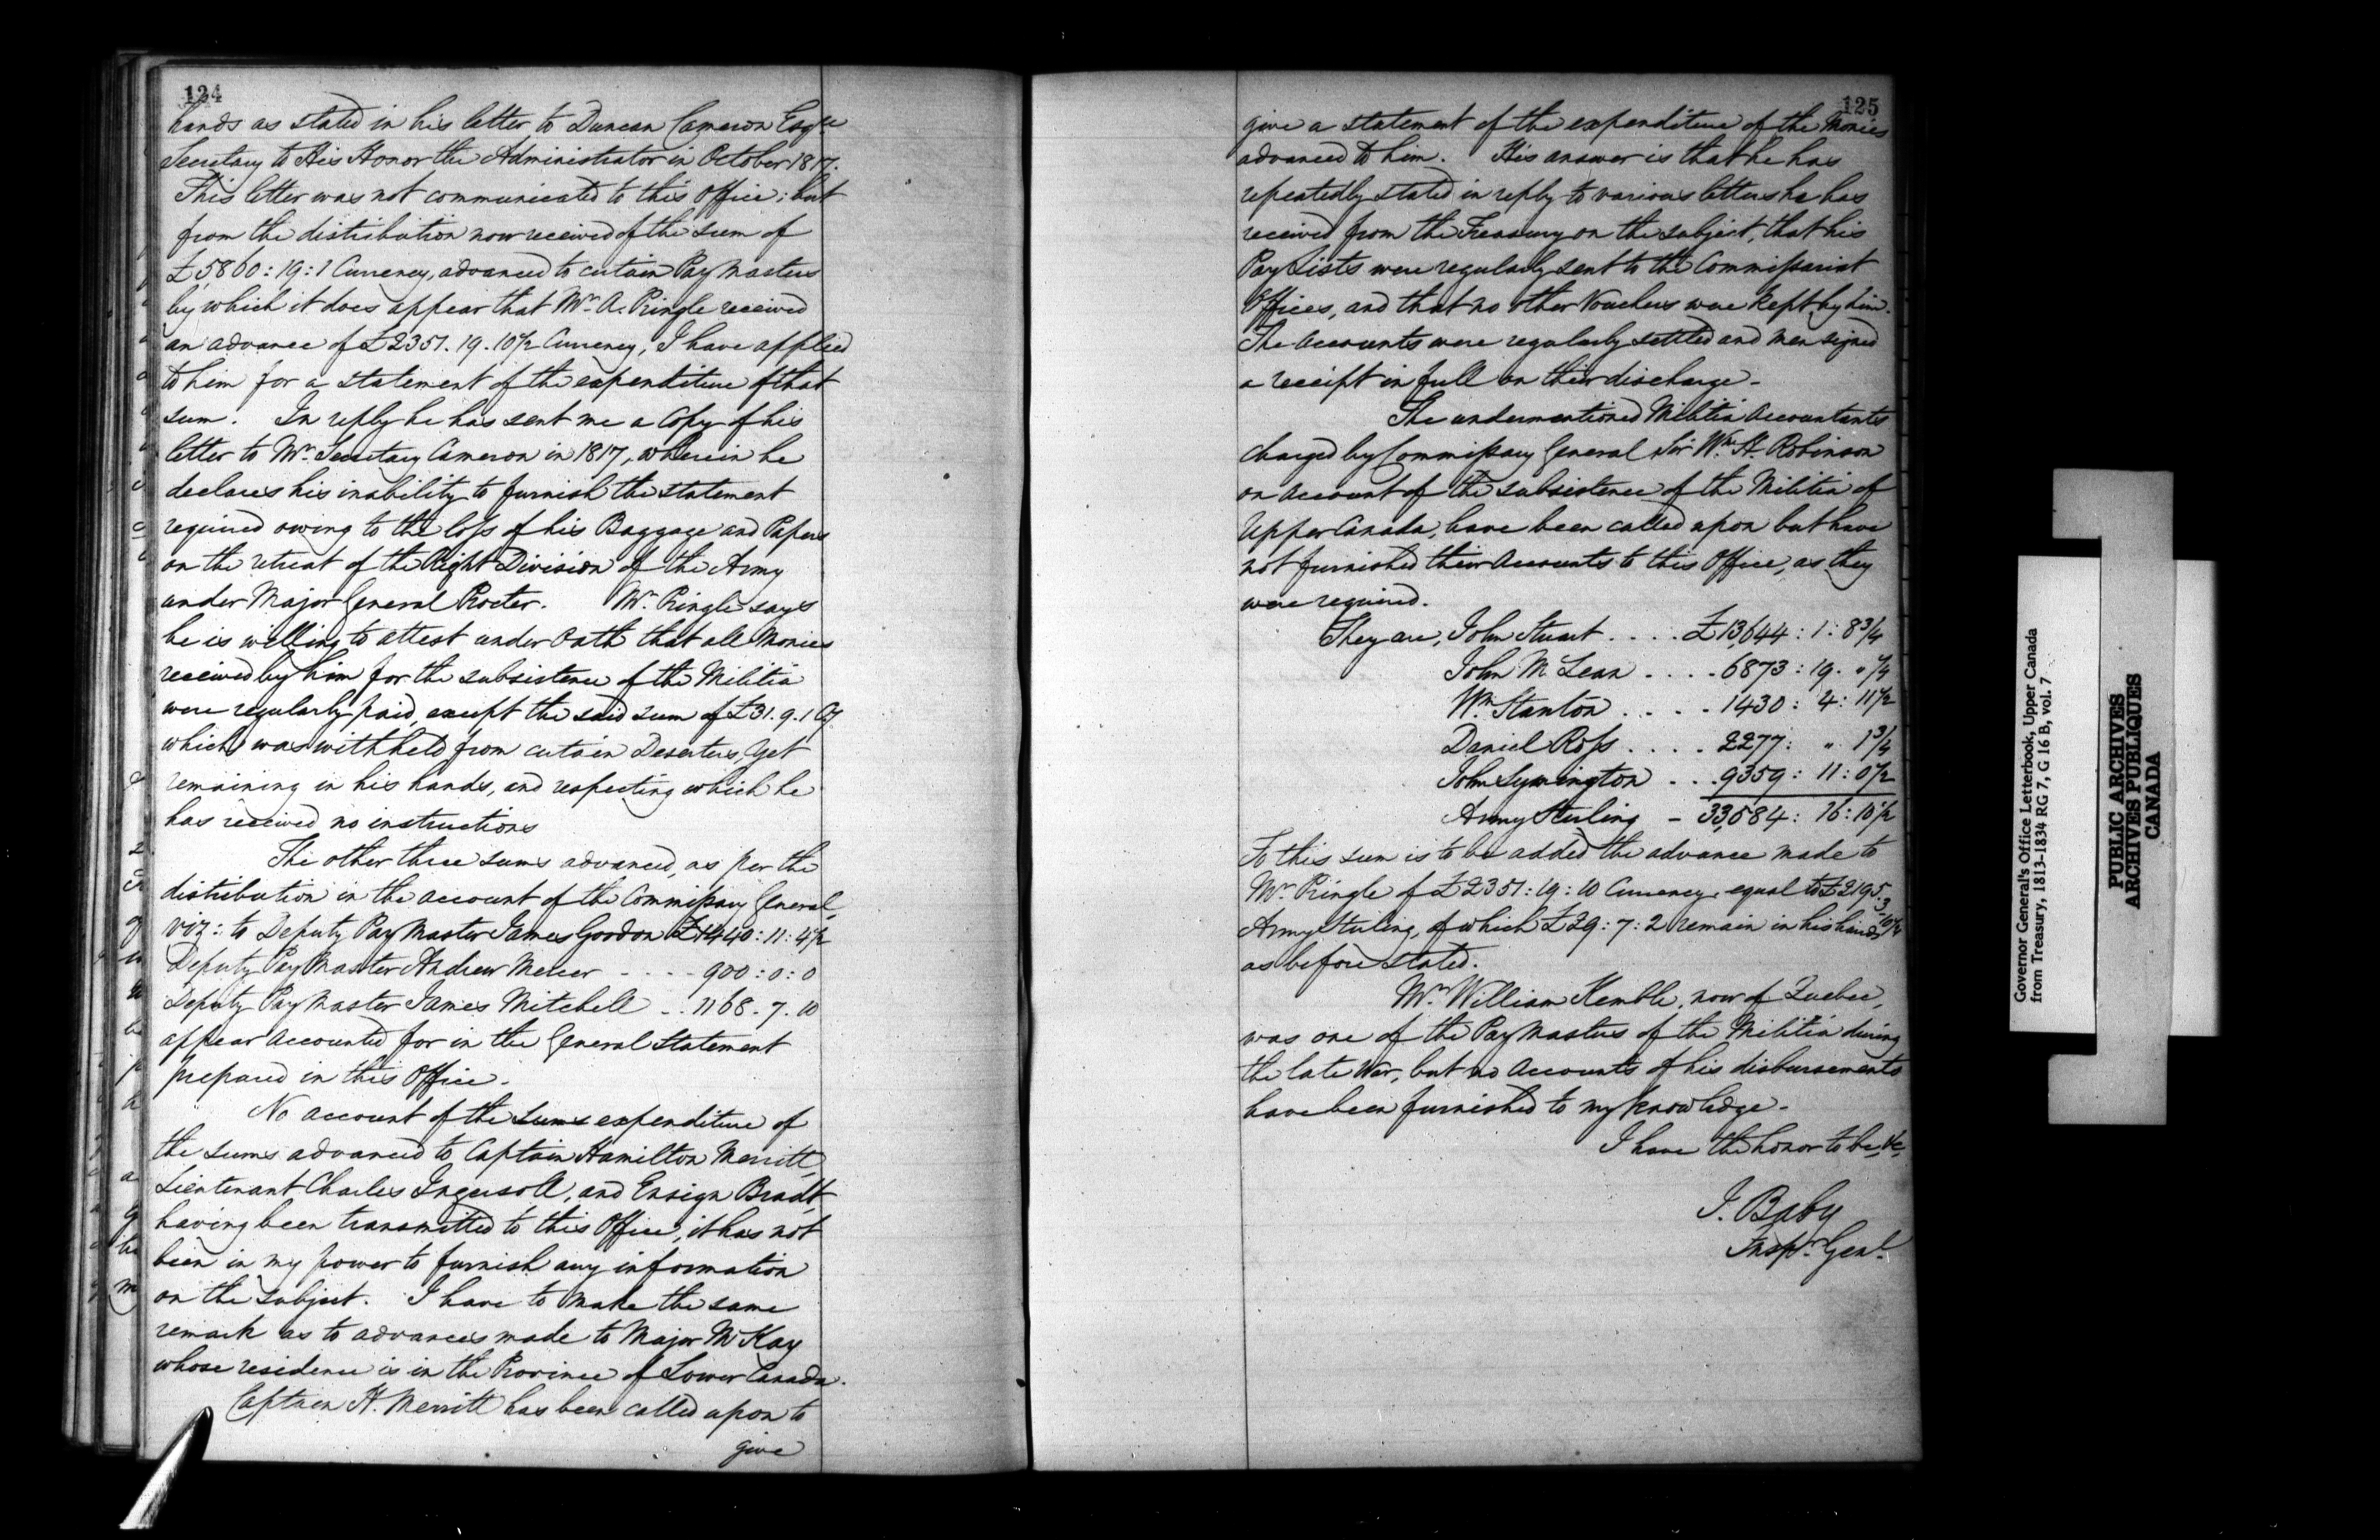 124
hands as stated in his letter to Duncan Cameron Esqre
Secretary to His Honor the Administrator in October 1817.
This letter was not communicated to this Office; but
from the distribution now received of the sum of
£5860:19:1 Currency, advanced to certain Pay Masters
by which it does appear that Mr. A. Pringle received
an advance of £2351.19.10½ Currency, I have applied
to him for a statement of the expenditure of that
sum. In reply he has sent me a Copy of his
letter to Mr. Secretary Cameron in 1817, wherein he
declares his inability to furnish the statement
required owing to the loss of his Baggage and Papers
on the retreat of the Right Division of the Army
under Major General Procter. Mr. Pringle says
he is willing to attest under Oath that all Monies
received by him for the subsistence of the Militia
were regularly paid, except the said sum of £31.9.1 Cy.
which was withheld from certain Deserters, yet
remaining in his hands, and respecting which he
has received no instructions
The other three sums advanced, as per the
distribution in the account of the Commissary General,
viz: to Deputy Pay Master James Gordon £1440:11:4½
Deputy Pay Master Andrew Mercer - - - - 900:0:0
Deputy Pay Master James Mitchell - . . 1168.7.10
appear accounted for in the General Statement
prepared in this Office.
No account of the sums expenditure of
the sums advanced to Captain Hamilton Merritt,
Lieutenant Charles Ingersoll, and Ensign Bradt,
having been transmitted to this Office, it has not
been in my power to furnish any information
on the subject. I have to make the same
remark as to advances made to Major McKay
whose residence is in the Province of Lower Canada.
Captain H. Merritt has been called upon to
give
125
give a statement of the expenditure of the Monies
advanced to him. His answer is that he has
repeatedly stated in reply to various letters he has
received from the Treasury on the subject, that his
Pay Lists were regularly sent to the Commissariat
Offices, and that no other Vouchers were kept by him.
The Accounts were regularly settled and men signed
a receipt in full on their discharge -
The undermentioned Militia Accountants
charged by Commissary General Sir Wm. H. Robinson
on account of the subsistence of the Militia of
Upper Canada, have been called upon but have
not furnished their Accounts to this Office, as they
were required.
They are, John Stuart . . . . £13,644:1:8¾
John McLean . . . . 6873:19. "¼
Wm. Stanton . . . . 1430:4:11½
Daniel Ross . . . . 2277: " 1¾
John Symington . . . 9359:11:0½
Army Sterling - 33,584:16:10½
To this sum is to be added the advance made to
Mr. Pringle of £2351:19:10 Currency equal to £2195.3.10¼
Army Sterling, of which £29:7:2 remain in his hands
as before stated.
Mr. William Kemble, now of Quebec,
was one of the Pay Masters of the Militia during
the late War, but no Accounts of his disbursements
have been furnished to my knowledge -
I have the honor to be, &c,
J. Baby
Inspr. Genl.
Governor General's Office Letterbook, Upper Canada
from Treasury, 1813-1834 RG 7, G 16 B, vol. 7
PUBLIC ARCHIVES
ARCHIVES PUBLIQUES
CANADA